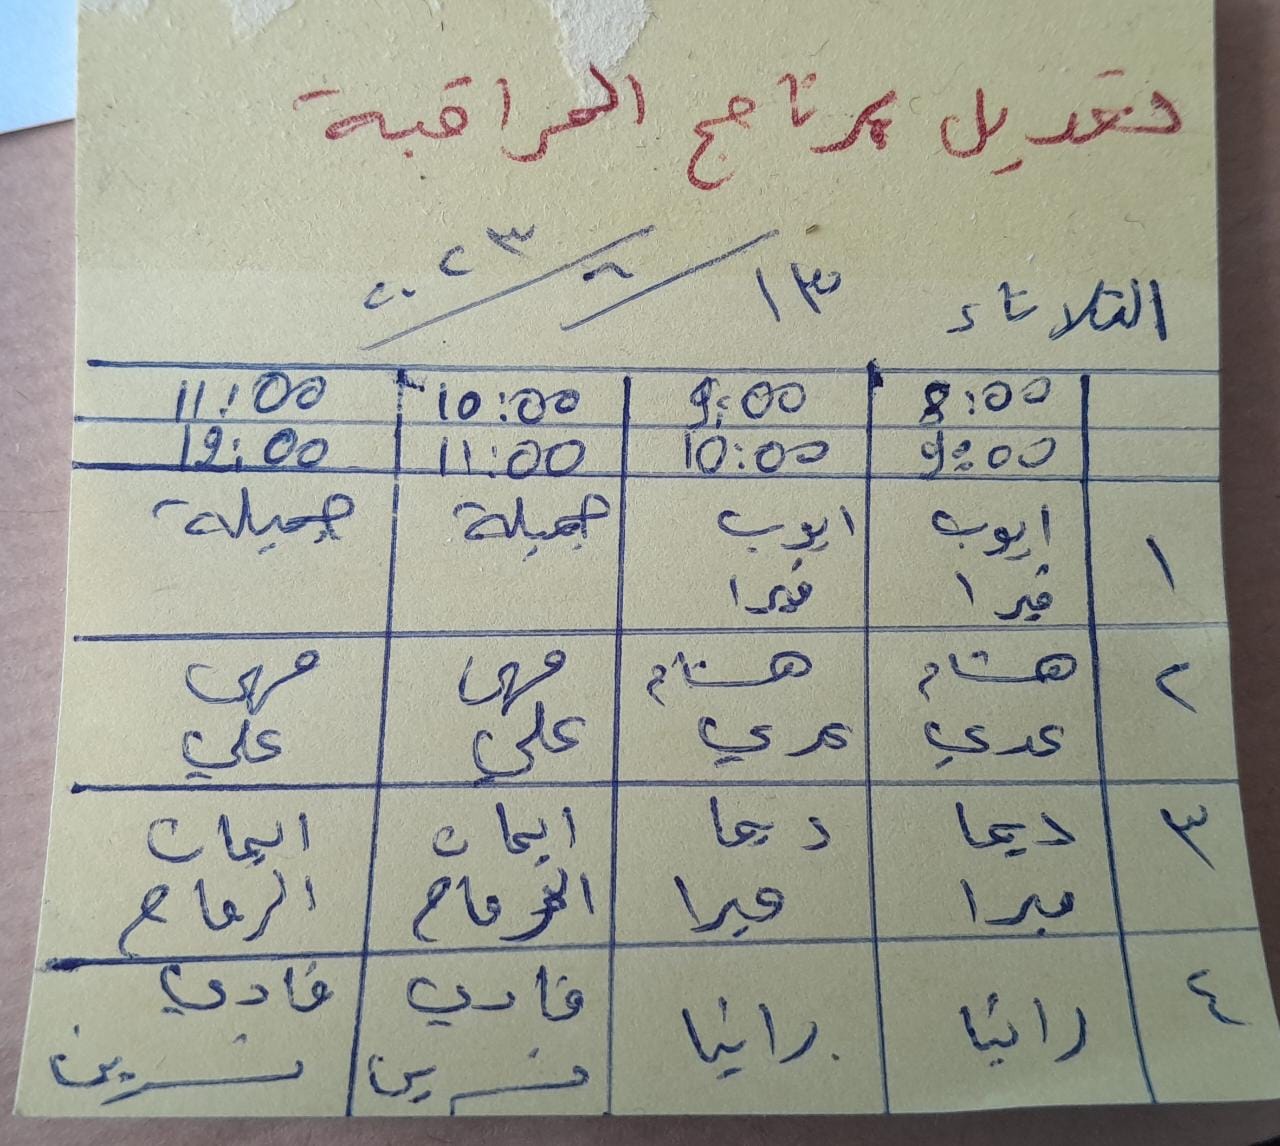 تعديل برنامج المراقبة
الثلاثاء ١٣/٦/٢٠٢٣
8:00 9:00 10:00 11:00
9:00 10:00 11:00 12:00
١ ايوب ايوب جميلة جميلة
فيرا فيرا
٢ هشام هشام مهى مهى
عدي عدي علي علي
٣ ديما ديما ايمان ايمان
ميرا ميرا الرماح الرماح
٤ رانيا رانيا فادي فادي
نسرين نسرين